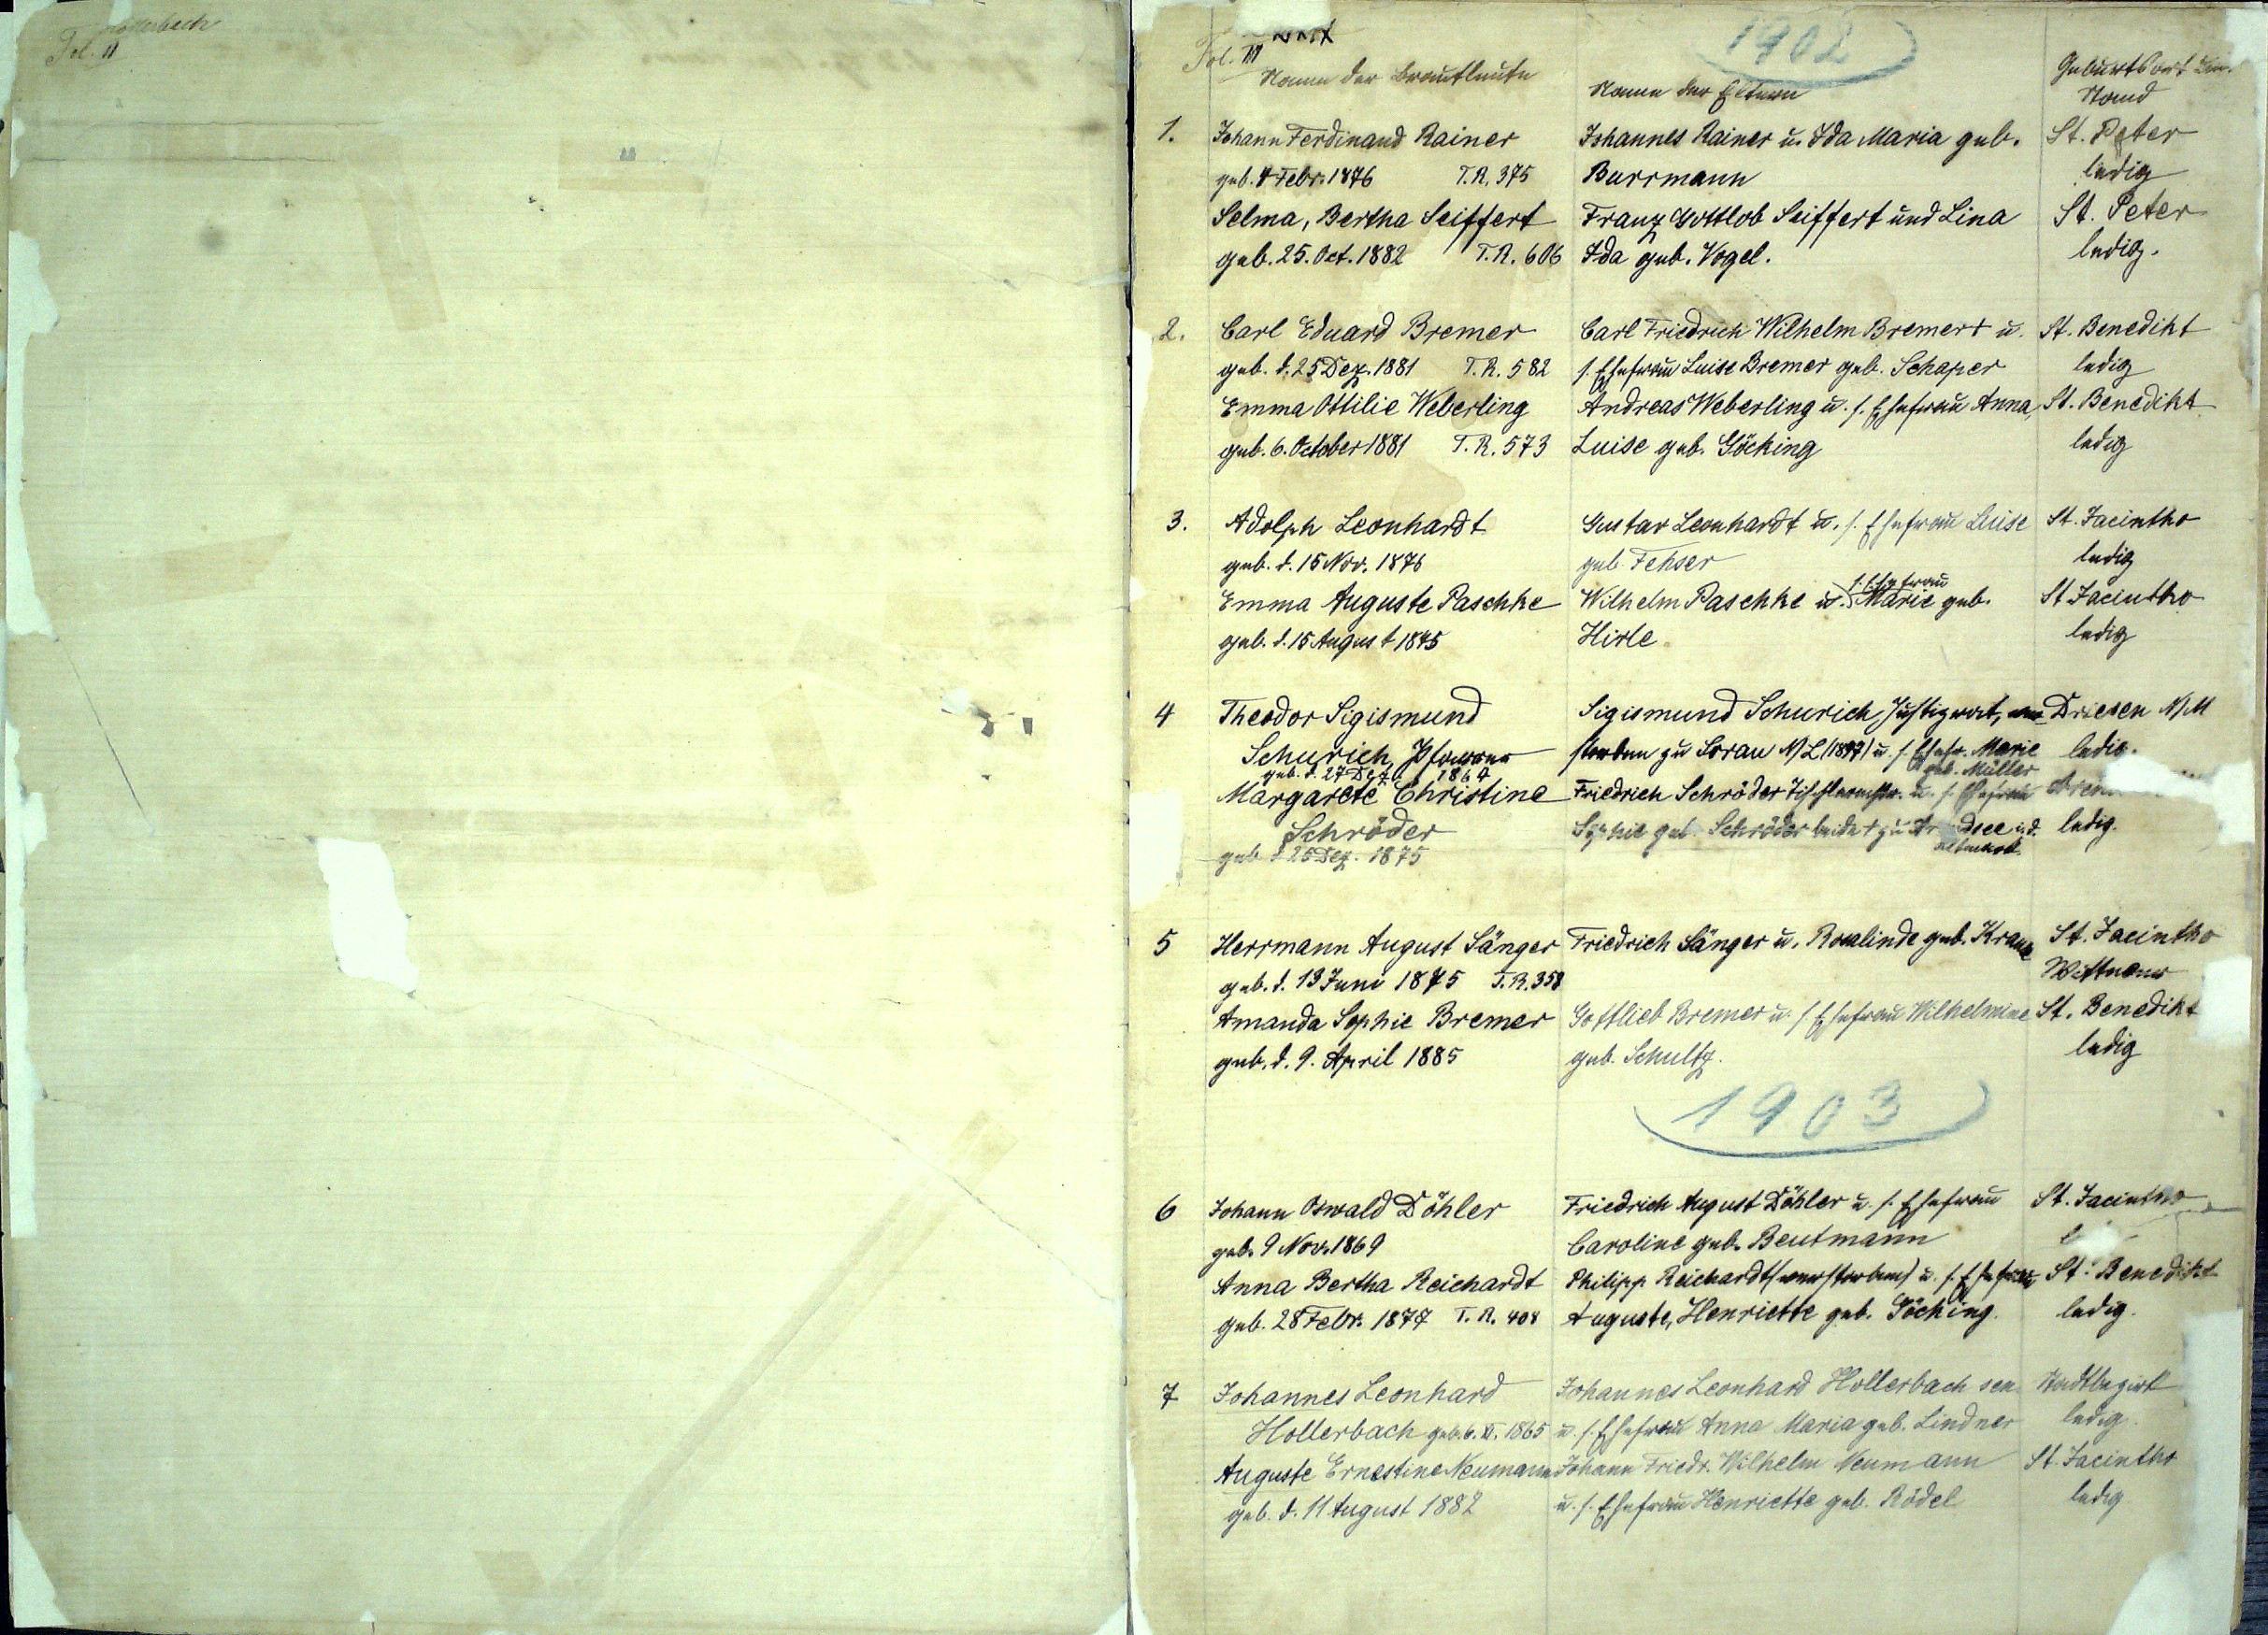 Hollerbach
Fol. II
Fol. III
1902
Name der Brautleute
Name der Eltern
Geburtsort
Stand
1. Johann Ferdinand Rainer Johannes Rainer u. Ida Maria geb. St. Peter
geb. 4 Febr. 1876 T.R. 375 Burrmann ledig
Selma, Bertha Seiffert Franz Gottlob Seiffert und Lina St. Peter
geb. 25. Oct. 1882 T.R. 606 Ida geb. Vogel. ledig.
2. Carl Eduard Bremer Carl Friedrich Wilhelm Bremer † u. St. Benedikt
geb. d. 25 Dez. 1881 T.R. 582 s. Ehefrau Luise Bremer geb. Schaper ledig
Emma Ottilie Weberling Andreas Weberling u. s. Ehefrau Anna, St. Benedikt
geb. 6. October 1881 T.R. 573 Luise geb. Göcking ledig
3. Adolph Leonhardt Gustav Leonhardt u. s. Ehefrau Luise St. Jacintho
geb. d. 15 Nov. 1876 geb. Fehser ledig
s. Ehefrau
Emma Auguste Paschke Wilhelm Paschke u. Marie geb. St Jacintho
geb. d. 15 August 1875 Hirle ledig
4 Theodor Sigismund Sigismund Schurich, Justizrat, ver Driesen N/M
Schurich, Pfarrer storben zu Sorau N/L (1897) u. s. Ehefr. Marie ledig.
geb. d. 27 Dez. 1864 geb. Müller
Margarete Christine Friedrich Schröder Tischlermstr. u. s. Ehefrau
Schröder Sophie geb. Schröder beide † zu Arendsee i. d. ledig.
geb. d 25 Dez. 1875 Altmark.
5 Herrmann August Sänger Friedrich Sänger u. Rosalinde geb. Kranz St. Jacintho
geb. d. 13 Juni 1875 T.R. 358 Wittwer
Amanda Sophie Bremer Gottlieb Bremer u. s. Ehefrau Wilhelmine St. Benedikt
geb. d. 9. April 1885 geb. Schultz. ledig
1903
6 Johann Oswald Döhler Friedrich August Döhler u. s. Ehefrau St. Jacintho
geb. 9 Nov. 1869 Caroline geb. Beutmann
Anna Bertha Reichardt Philipp Reichardt (verstorben) u. s. Ehefrau St. Benedikt
geb. 28 Febr. 1877 T.R. 408 Auguste, Henriette geb. Göcking. ledig.
7 Johannes Leonhard Johannes Leonhard Hollerbach sen. Stadtbezirk
Hollerbach geb. 6. XI. 1865 u. s. Ehefrau Anna Maria geb. Lindner ledig.
Auguste Ernestine Neumann Johann Friedr. Wilhelm Neumann St. Jacintho
geb. d. 11 August 1882 u. s. Ehefrau Henriette geb. Rödel ledig